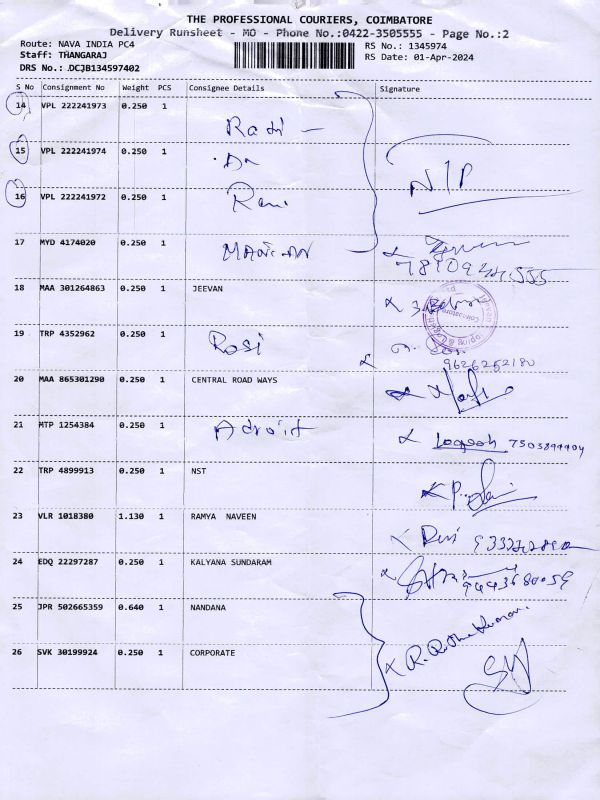 THE PROFESSIONAL COURIERS, COIMBATORE
Delivery Runsheet - MO - Phone No.:0422-3505555 - Page No.:2
Route: NAVA INDIA PC4 RS No.: 1345974
Staff: THANGARAJ RS Date: 01-Apr-2024
DRS No.: DCJB134597402
S No Consignment No Weight PCS Consignee Details Signature
14 VPL 222241973 0.250 1
15 VPL 222241974 0.250 1
16 VPL 222241972 0.250 1 Rani
17 MYD 4174020 0.250 1
18 MAA 301264863 0.250 1 JEEVAN
19 TRP 4352962 0.250 1 Rosi
9626252180
20 MAA 865301290 0.250 1 CENTRAL ROAD WAYS
21 MTP 1254384 0.250 1 Adroit Logesh
22 TRP 4899913 0.250 1 NST
23 VLR 1018380 1.130 1 RAMYA NAVEEN
24 EDQ 22297287 0.250 1 KALYANA SUNDARAM
25 JPR 502665359 0.640 1 NANDANA
26 SVK 30199924 0.250 1 CORPORATE